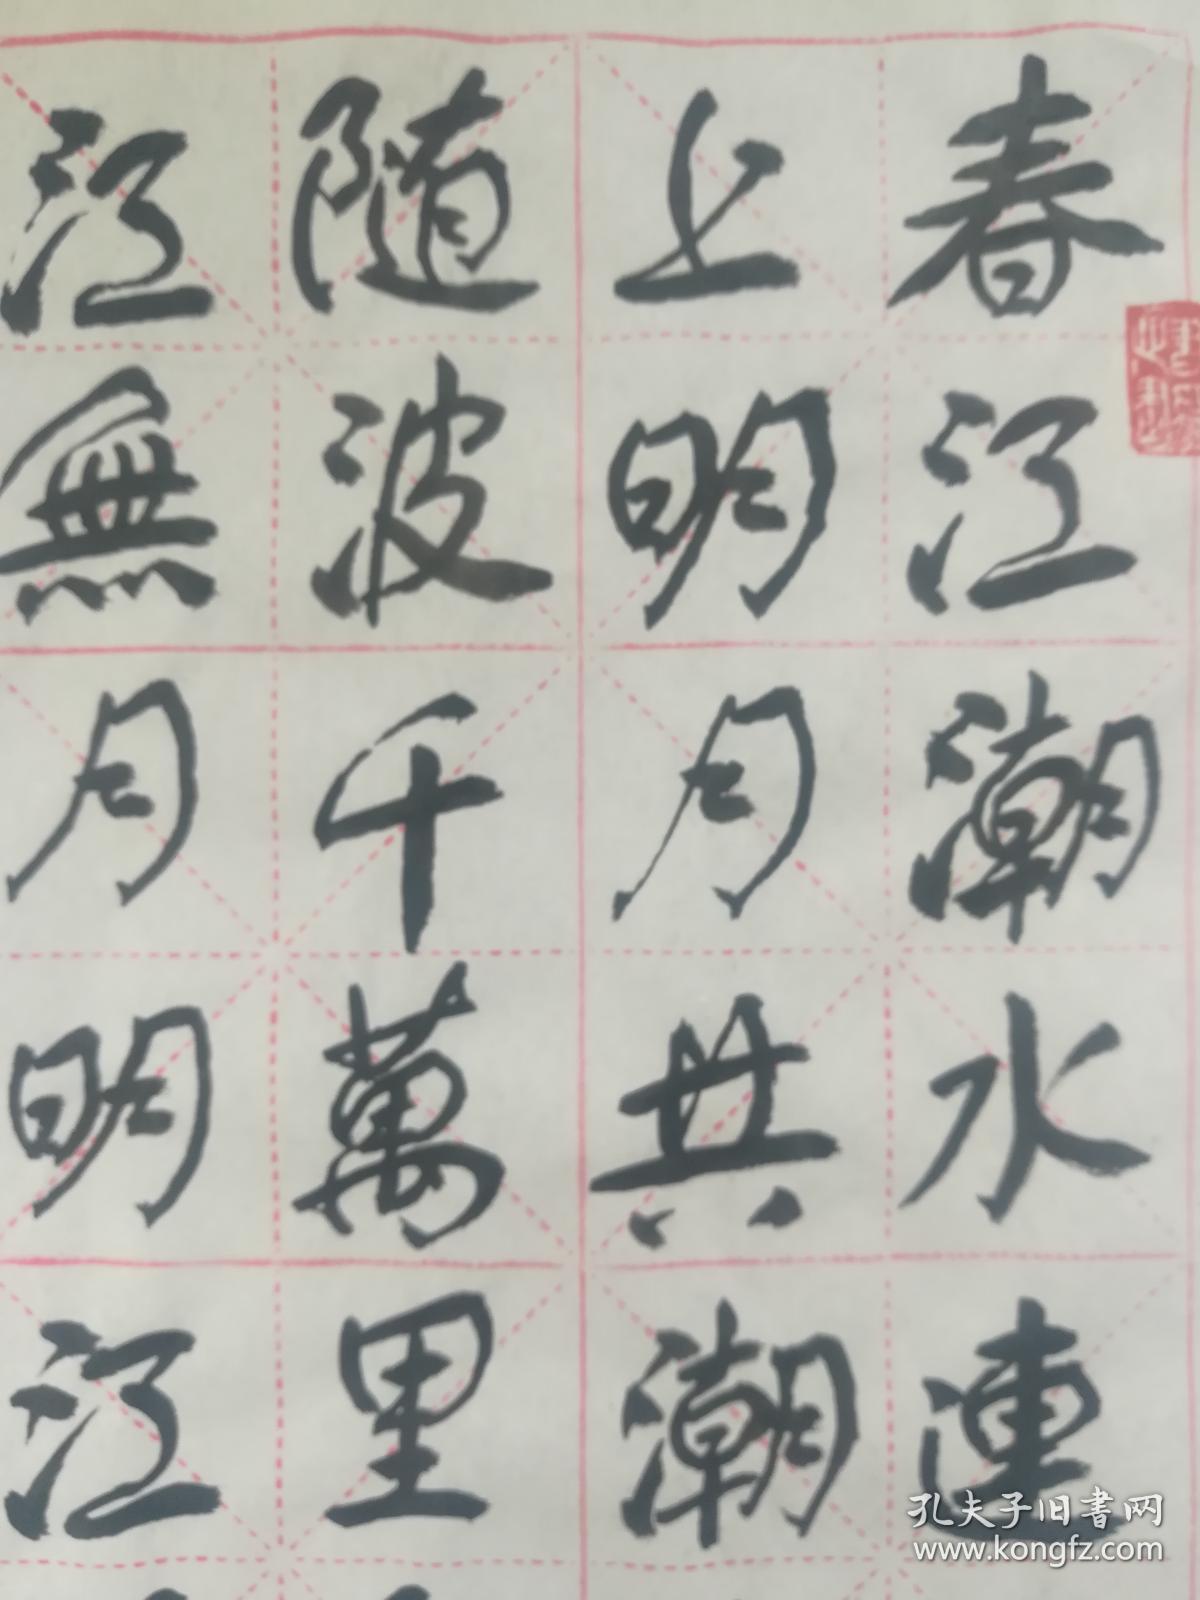 春江潮水連
上明月共潮
随波千萬里
江無月明江
孔夫子旧书网
www.kongfz.com